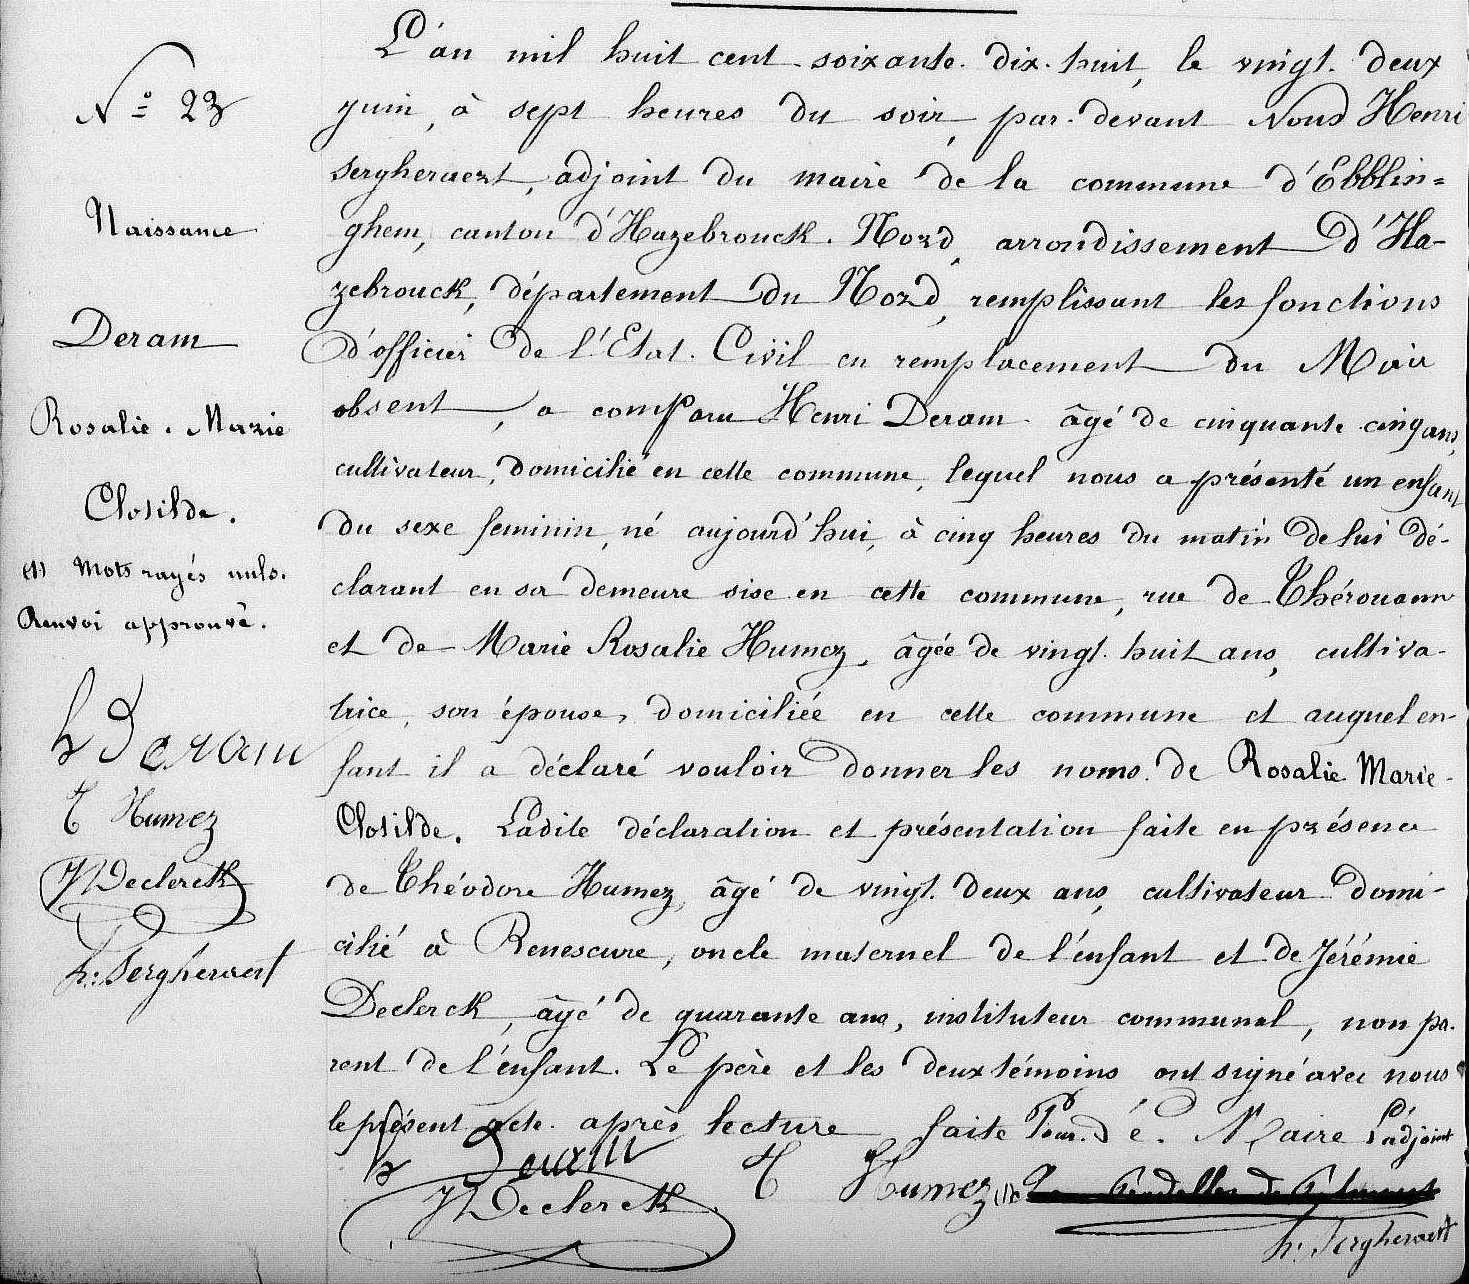 N° 23
Naissance
Deram
Rosalie. Marie
Clotilde.
(1) Mots rayés nuls.
Renvoi approuvé.
h Deram
T Humez
J Declerck
h. Sergheraert
L'an mil huit cent soixante dix huit, le vingt deux
juin, à sept heures du soir, par devant Nous Henri
Sergheraert, adjoint du maire de la commune d'Ebblin=
ghem, canton d'Hazebrouck. Nord, arrondissement d'Ha-
zebrouck, département du Nord, remplissant les fonctions
d'officier de l'Etat. Civil en remplacement du Maire
absent, a comparu Henri Deram âgé de cinquante cinq ans,
cultivateur, domicilié en cette commune, lequel nous a présenté un enfant
du sexe feminin, né aujourd'hui, à cinq heures du matin de lui dé-
clarant en sa demeure sise en cette commune, rue de Thérouanne
et de Marie Rosalie Humez, âgée de vingt huit ans, cultiva-
trice, son épouse, domiciliée en cette commune et auquel en-
fant il a déclaré vouloir donner les noms de Rosalie Marie-
Clotilde. Ladite déclaration et présentation faite en présence
de Théodore Humez, âgé de vingt deux ans, cultivateur domi-
cilié à Renescure, oncle maternel de l'enfant et de Jérémie
Declerck, âgé de quarante ans, instituteur communal, non pa-
rent de l'enfant. Le père et les deux témoins ont signé avec nous
le présent acte après lecture faite Pour. Maire L'adjoint
h Deram T Humez (1)
J Declerck
h. Sergheraert